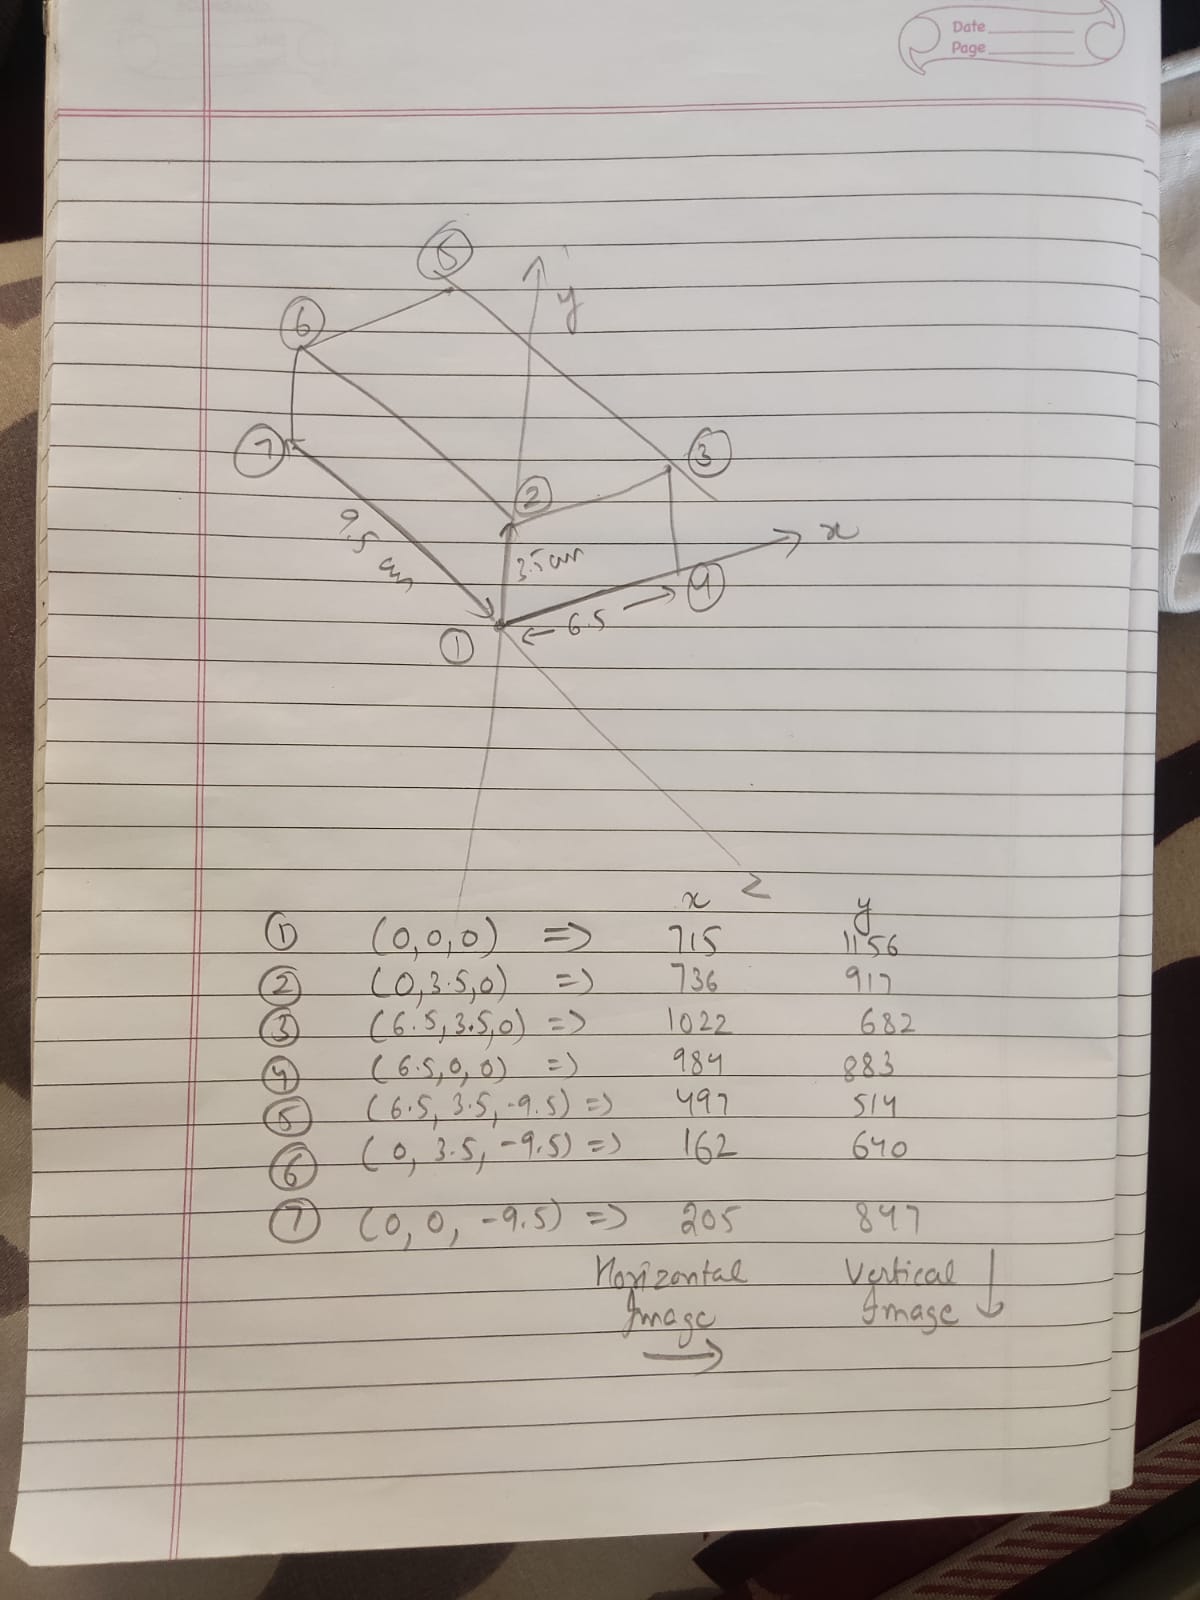 Date
Page
5
y
6
3
7
2
x
9.5 cm
3.5 cm
4
6.5
1
z
x y
1 (0,0,0) => 715 1156
2 (0,3.5,0) => 736 917
3 (6.5,3.5,0) => 1022 682
4 (6.5,0,0) => 984 883
5 (6.5, 3.5, -9.5) => 497 514
6 (0, 3.5, -9.5) => 162 640
7 (0, 0, -9.5) => 205 847
Horizontal Vertical ↓
Image Image
→